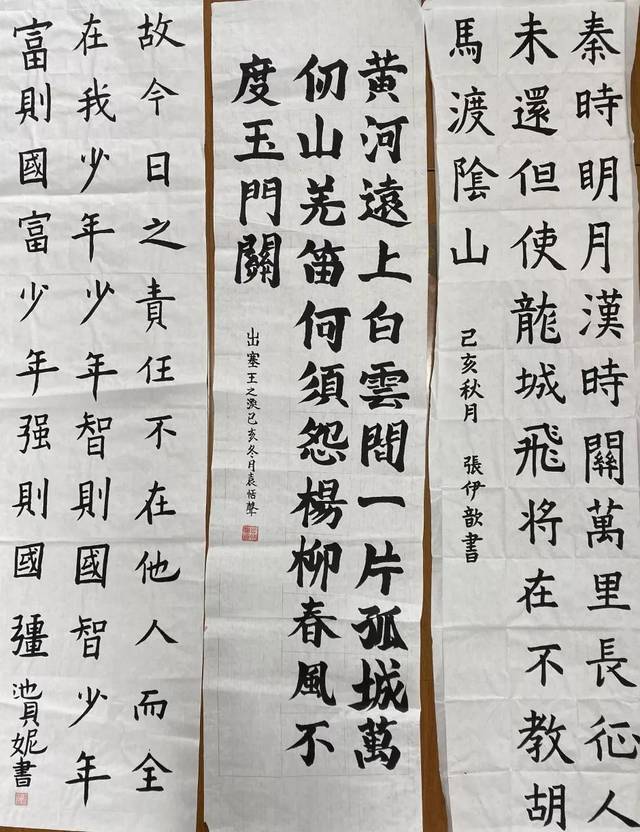 秦時明月漢時關萬里長征人
未還但使龍城飛将在不教胡
馬渡陰山
己亥秋月 張伊歆書
黄河遠上白雲間一片孤城萬
仞山羌笛何須怨楊柳春風不
度玉門關
出塞王之渙己亥冬月袁恬聲
故今日之責任不在他人而全
在我少年少年智則國智少年
富則國富少年强則國彊
池貝妮書